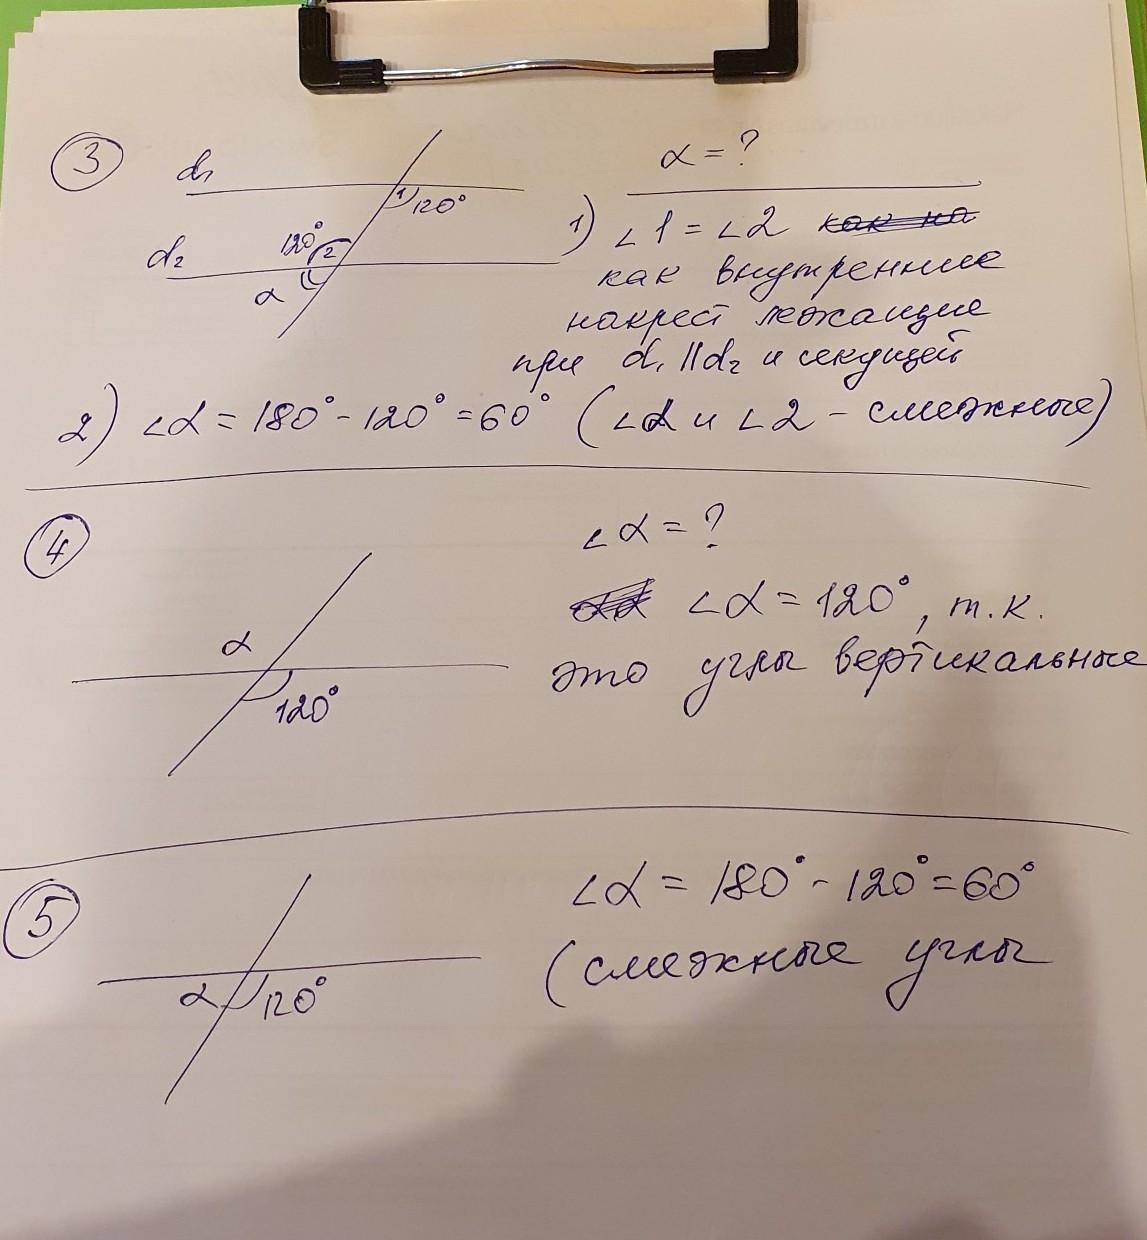 3
d₁
1 120°
120° 2
d₂
α
α = ?
1) ∠1 = ∠2
как внутренние
накрест лежащие
при d₁ || d₂ и секущей
2) ∠α = 180° - 120° = 60° (∠α и ∠2 - смежные)
4
α
120°
∠α = ?
∠α = 120°, т.к.
это углы вертикальные
5
α 120°
∠α = 180° - 120° = 60°
(смежные углы